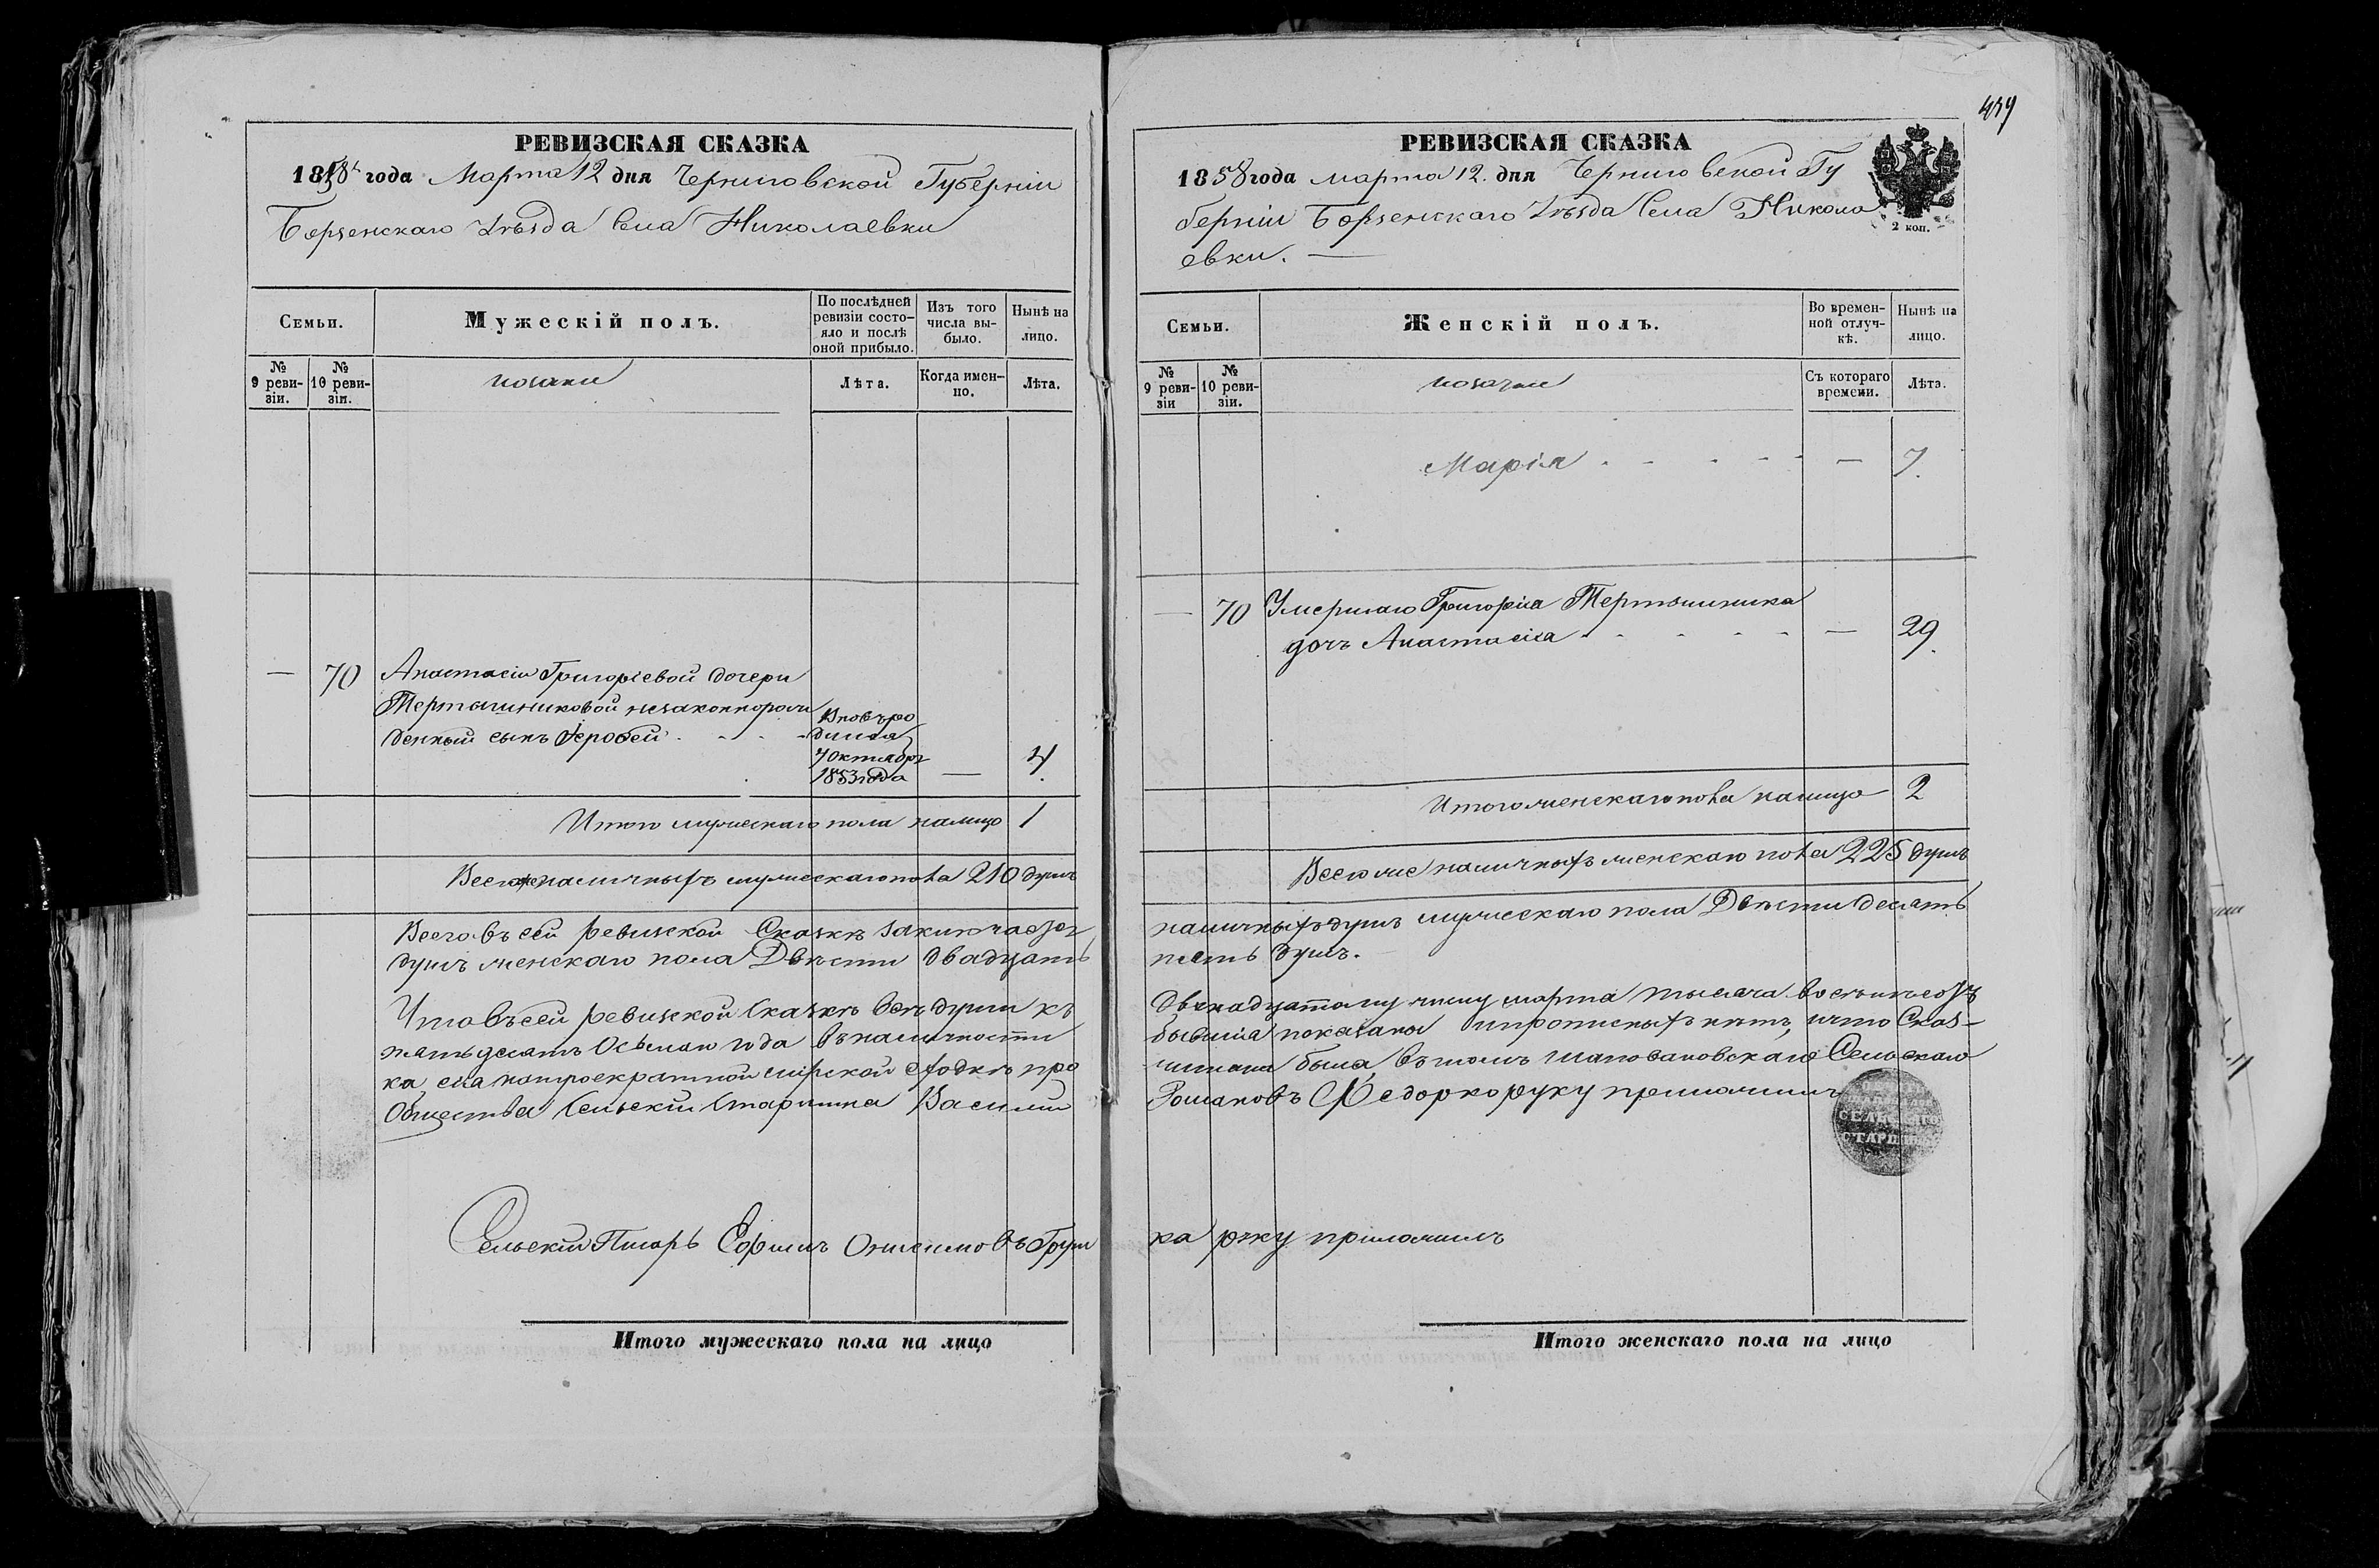 РЕВИЗСКАЯ СКАЗКА
1858 года Марта 12 дня Черниговской Губерніи
Борзенскаго Уѣзда Села Николаевки
Семьи.
Мужескій полъ.
По послѣдней ревизіи состо-
яло и послѣ
оной прибыло.
Изъ того
числа вы-
было.
Нынѣ на
лицо.
№
9 реви-
зіи.
№
10 реви-
зіи.
козаки
Лѣта.
Когда имен-
но.
Лѣта.
— 70 Анастасіи Григоріевой дочери
Тертышниковой незаконнорож
денный сынъ Іерофей
Вновь ро
дился
7 октября
1853 года — 4
Итого мужескаго пола налицо 1
Всего же наличныхъ мужескаго пола 210 душъ
Всего въ сей ревизской Сказкѣ заключает
душъ женскаго пола Двѣсти двадцать
Что въ сей ревизской Сказкѣ всѣ души къ
пятьдесятъ Осьмаго года въ наличности
ка сія на троекратной мірской сходкѣ про
Общества Сельскій Старшина Василій
Сельскій Писарь Ефимъ Онисимовъ Груш
Итого мужескаго пола на лицо
459
РЕВИЗСКАЯ СКАЗКА
1858 года марта 12. дня Черниговской Гу
берніи Борзенскаго Уѣзда Села Никола
евки. —
2 коп.
Семьи.
Женскій полъ.
Во времен-
ной отлуч-
кѣ.
Нынѣ на
лицо.
№
9 реви-
зіи
№
10 реви-
зіи.
козачки
Съ котораго
времени.
Лѣта.
Марія — 7.
— 70 Умершаго Григорія Тертышника
дочь Анастасія — 29.
Итого женскаго пола налицо 2
Всего же наличныхъ женскаго пола 225 душъ
наличныхъ душъ мужескаго пола Двѣсти десять
пять душъ.
двѣнадцатому числу марта тысяча восемьсотъ
бывшія показаны и прописныхъ нѣтъ, и что Сказ-
читана была, въ томъ Шаповаловскаго Сельскаго
Романовъ Федорко руку приложилъ
СЕЛЬСКАГО
СТАРШИНЫ
ка руку приложилъ
Итого женскаго пола на лицо